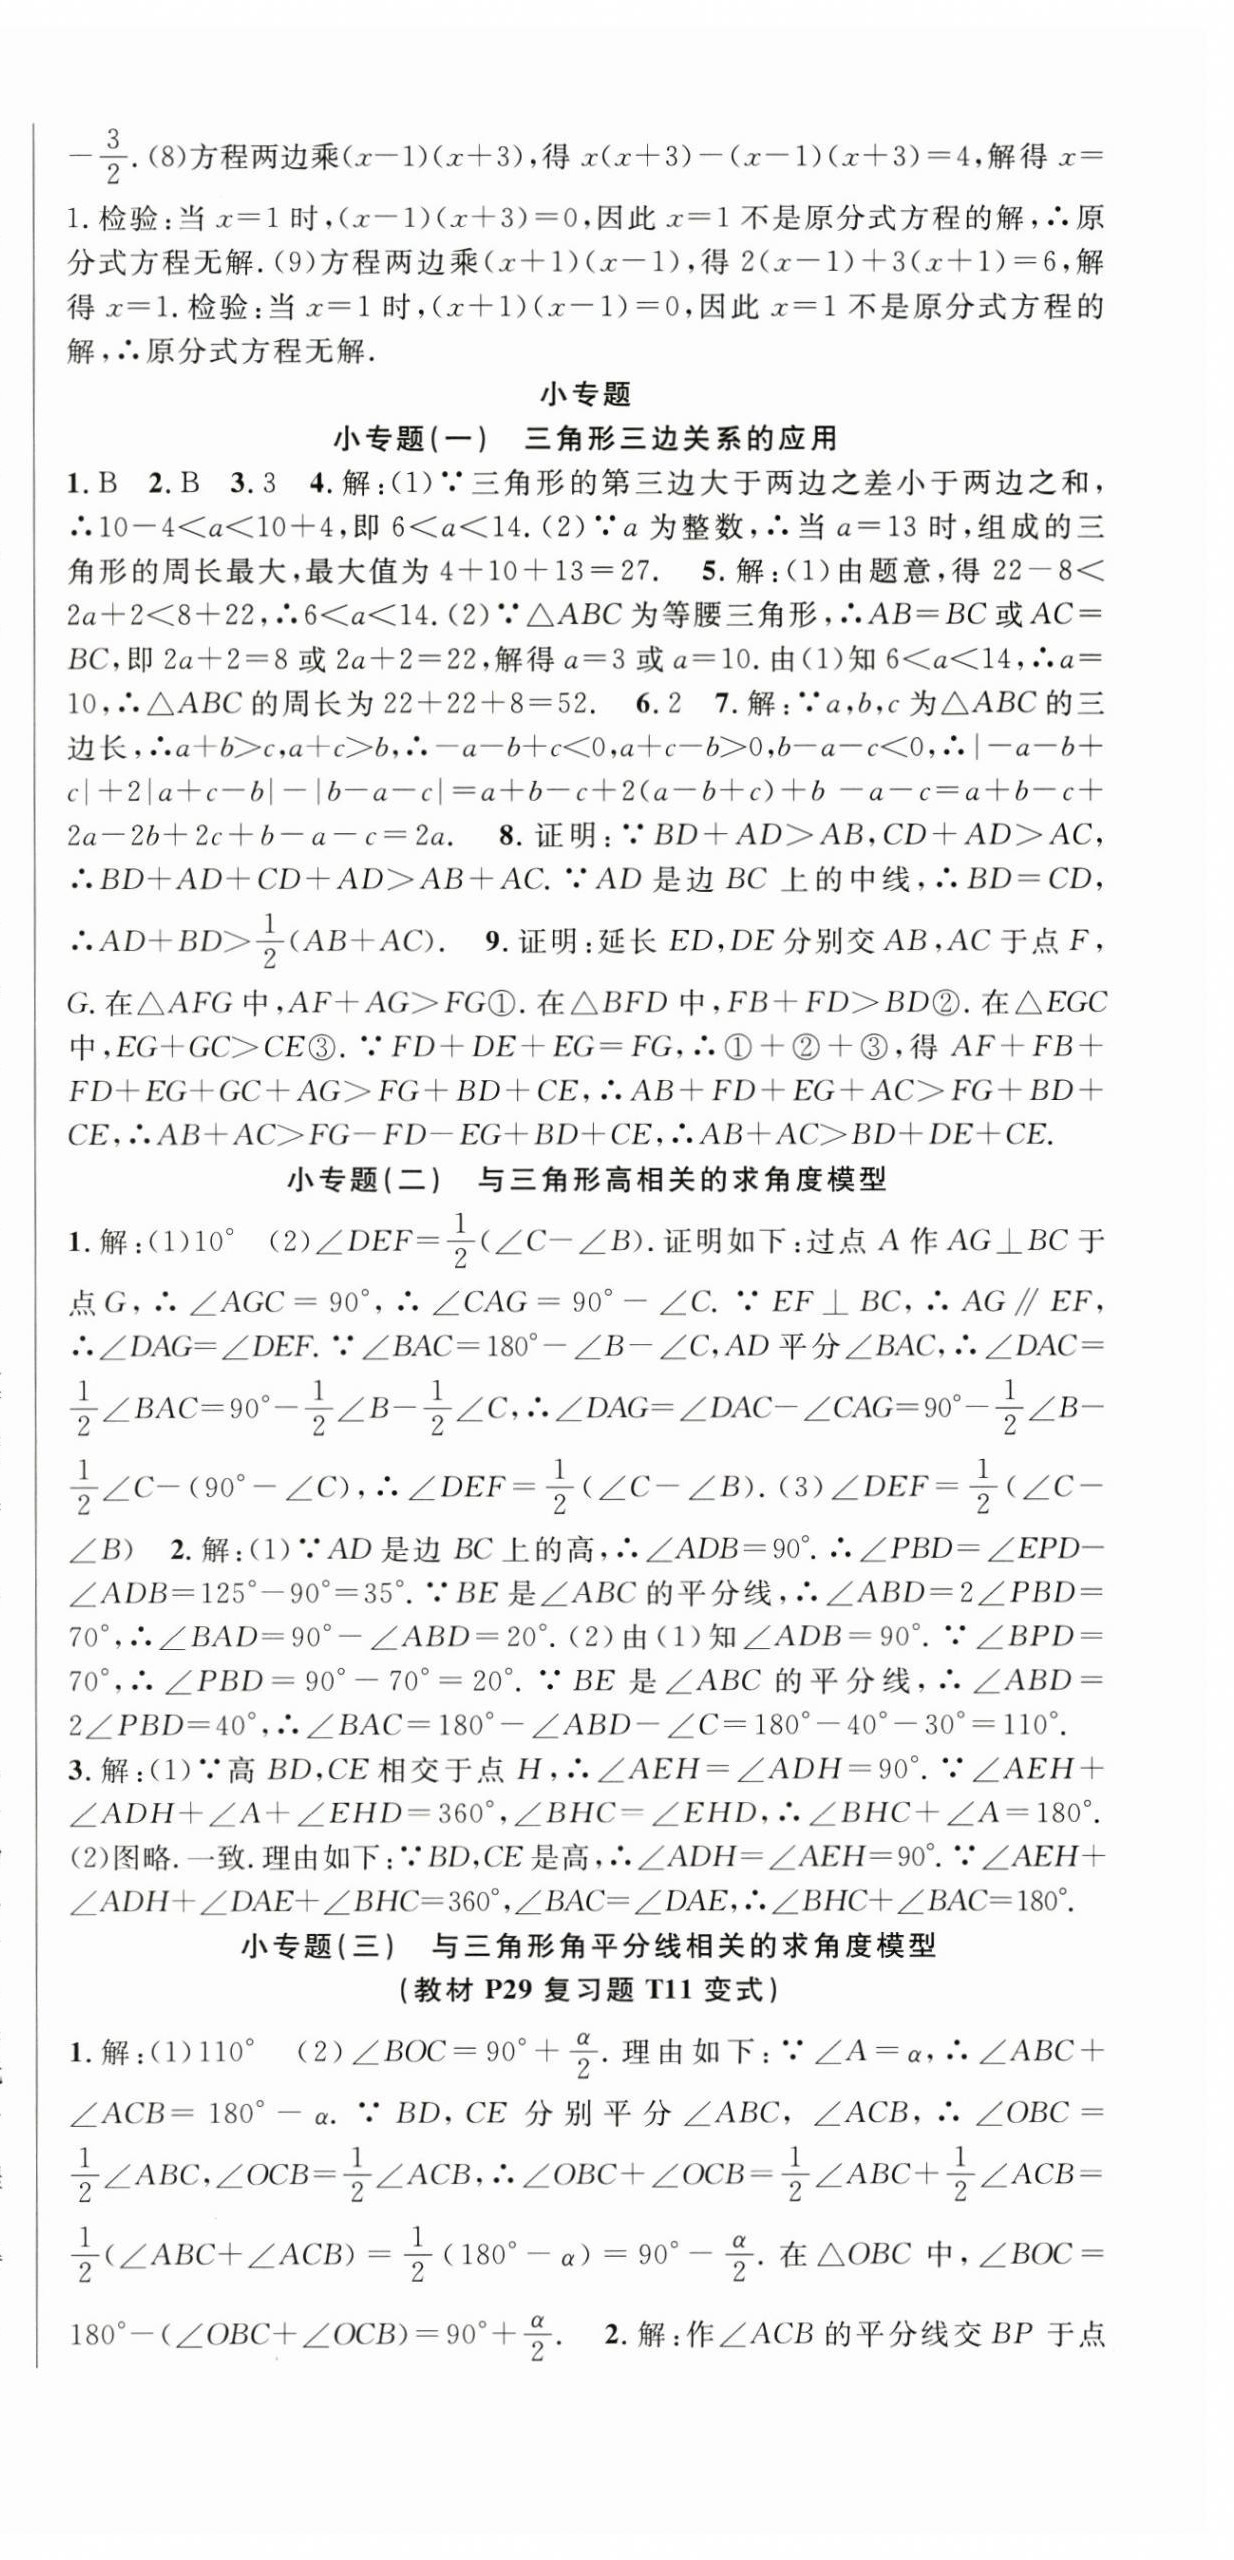 －3/2.(8)方程两边乘(x－1)(x＋3),得 x(x＋3)－(x－1)(x＋3)＝4,解得 x＝
1.检验:当 x＝1 时,(x－1)(x＋3)＝0,因此 x＝1 不是原分式方程的解,∴原
分式方程无解.(9)方程两边乘(x＋1)(x－1),得 2(x－1)＋3(x＋1)＝6,解
得 x＝1.检验:当 x＝1 时,(x＋1)(x－1)＝0,因此 x＝1 不是原分式方程的
解,∴原分式方程无解.
小专题
小专题(一)　三角形三边关系的应用
1.B　2.B　3.3　4.解:(1)∵三角形的第三边大于两边之差小于两边之和,
∴10－4＜a＜10＋4,即 6＜a＜14.(2)∵a 为整数,∴当 a＝13 时,组成的三
角形的周长最大,最大值为 4＋10＋13＝27.　5.解:(1)由题意,得 22－8＜
2a＋2＜8＋22,∴6＜a＜14.(2)∵△ABC 为等腰三角形,∴AB＝BC 或 AC＝
BC,即 2a＋2＝8 或 2a＋2＝22,解得 a＝3 或 a＝10.由(1)知 6＜a＜14,∴a＝
10,∴△ABC 的周长为 22＋22＋8＝52.　6.2　7.解:∵a,b,c 为△ABC 的三
边长,∴a＋b＞c,a＋c＞b,∴－a－b＋c＜0,a＋c－b＞0,b－a－c＜0,∴|－a－b＋
c|＋2|a＋c－b|－|b－a－c|＝a＋b－c＋2(a－b＋c)＋b －a－c＝a＋b－c＋
2a－2b＋2c＋b－a－c＝2a.　8.证明:∵BD＋AD＞AB,CD＋AD＞AC,
∴BD＋AD＋CD＋AD＞AB＋AC.∵AD 是边 BC 上的中线,∴BD＝CD,
∴AD＋BD＞1/2(AB＋AC).　9.证明:延长 ED,DE 分别交 AB,AC 于点 F,
G.在△AFG 中,AF＋AG＞FG①.在△BFD 中,FB＋FD＞BD②.在△EGC
中,EG＋GC＞CE③.∵FD＋DE＋EG＝FG,∴①＋②＋③,得 AF＋FB＋
FD＋EG＋GC＋AG＞FG＋BD＋CE,∴AB＋FD＋EG＋AC＞FG＋BD＋
CE,∴AB＋AC＞FG－FD－EG＋BD＋CE,∴AB＋AC＞BD＋DE＋CE.
小专题(二)　与三角形高相关的求角度模型
1.解:(1)10°　(2)∠DEF＝1/2(∠C－∠B).证明如下:过点 A 作 AG⊥BC 于
点 G,∴∠AGC＝90°,∴∠CAG＝90°－∠C.∵EF⊥BC,∴AG∥EF,
∴∠DAG＝∠DEF.∵∠BAC＝180°－∠B－∠C,AD 平分∠BAC,∴∠DAC＝
1/2∠BAC＝90°－1/2∠B－1/2∠C,∴∠DAG＝∠DAC－∠CAG＝90°－1/2∠B－
1/2∠C－(90°－∠C),∴∠DEF＝1/2(∠C－∠B).(3)∠DEF＝1/2(∠C－
∠B)　2.解:(1)∵AD 是边 BC 上的高,∴∠ADB＝90°.∴∠PBD＝∠EPD－
∠ADB＝125°－90°＝35°.∵BE 是∠ABC 的平分线,∴∠ABD＝2∠PBD＝
70°,∴∠BAD＝90°－∠ABD＝20°.(2)由(1)知∠ADB＝90°.∵∠BPD＝
70°,∴∠PBD＝90°－70°＝20°.∵BE 是∠ABC 的平分线,∴∠ABD＝
2∠PBD＝40°,∴∠BAC＝180°－∠ABD－∠C＝180°－40°－30°＝110°.
3.解:(1)∵高 BD,CE 相交于点 H,∴∠AEH＝∠ADH＝90°.∵∠AEH＋
∠ADH＋∠A＋∠EHD＝360°,∠BHC＝∠EHD,∴∠BHC＋∠A＝180°.
(2)图略.一致.理由如下:∵BD,CE 是高,∴∠ADH＝∠AEH＝90°.∵∠AEH＋
∠ADH＋∠DAE＋∠BHC＝360°,∠BAC＝∠DAE,∴∠BHC＋∠BAC＝180°.
小专题(三)　与三角形角平分线相关的求角度模型
(教材 P29 复习题 T11 变式)
1.解:(1)110°　(2)∠BOC＝90°＋α/2.理由如下:∵∠A＝α,∴∠ABC＋
∠ACB＝180°－α.∵BD,CE 分别平分∠ABC,∠ACB,∴∠OBC＝
1/2∠ABC,∠OCB＝1/2∠ACB,∴∠OBC＋∠OCB＝1/2∠ABC＋1/2∠ACB＝
1/2(∠ABC＋∠ACB)＝1/2(180°－α)＝90°－α/2.在△OBC 中,∠BOC＝
180°－(∠OBC＋∠OCB)＝90°＋α/2.　2.解:作∠ACB 的平分线交 BP 于点